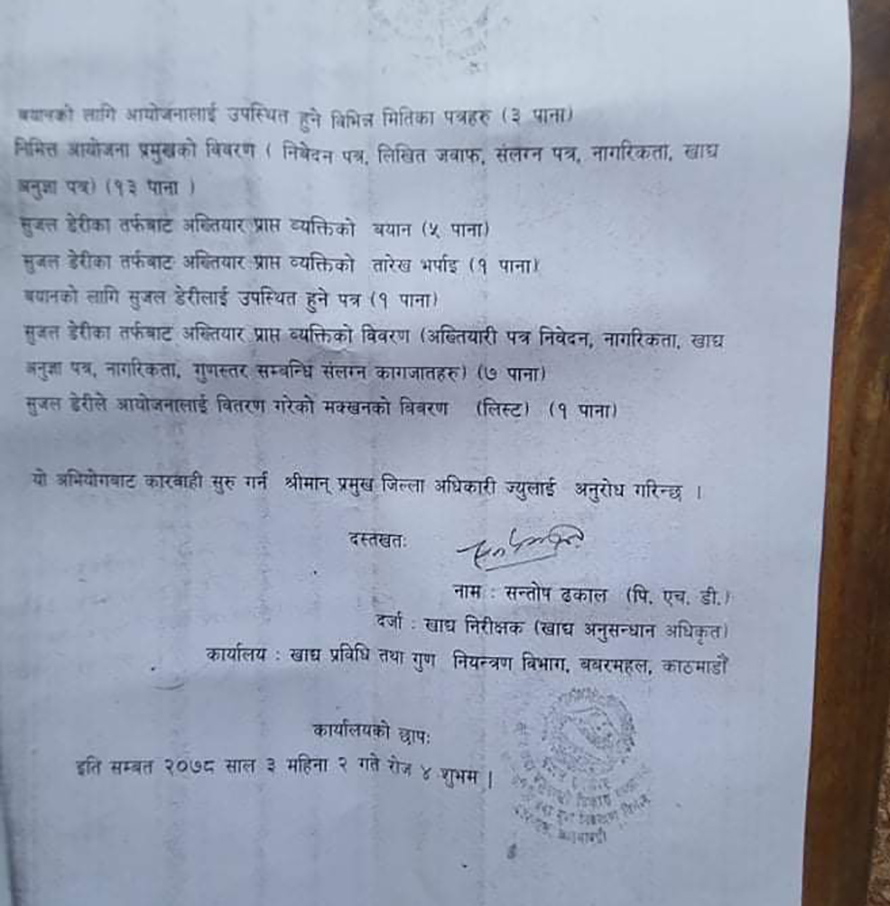 बयानको लागि आयोजनालाई उपस्थित हुने विभिन्न मितिका पत्रहरु (३ पाना)
निमित्त आयोजना प्रमुखको विवरण ( निवेदन पत्र, लिखित जवाफ, संलग्न पत्र, नागरिकता, खाद्य
अनुज्ञा पत्र) (१३ पाना )
सुजल डेरीका तर्फबाट अख्तियार प्राप्त व्यक्तिको बयान (५ पाना)
सुजल डेरीका तर्फबाट अख्तियार प्राप्त व्यक्तिको तारेख भर्पाइ (१ पाना)
बयानको लागि सुजल डेरीलाई उपस्थित हुने पत्र (१ पाना)
सुजल डेरीका तर्फबाट अख्तियार प्राप्त व्यक्तिको विवरण (अख्तियारी पत्र निवेदन, नागरिकता, खाद्य
अनुज्ञा पत्र, नागरिकता, गुणस्तर सम्बन्धि संलग्न कागजातहरु) (७ पाना)
सुजल डेरीले आयोजनालाई वितरण गरेको मक्खनको विवरण (लिस्ट) (१ पाना)
यो अभियोगबाट कारबाही सुरु गर्न श्रीमान् प्रमुख जिल्ला अधिकारी ज्युलाई अनुरोध गरिन्छ ।
दस्तखतः
नाम : सन्तोष ढकाल (पि. एच. डी.)
दर्जा : खाद्य निरीक्षक (खाद्य अनुसन्धान अधिकृत)
कार्यालय : खाद्य प्रविधि तथा गुण नियन्त्रण विभाग, बबरमहल, काठमाडौं
कार्यालयको छापः
इति सम्बत २०७८ साल ३ महिना २ गते रोज ४ शुभम |